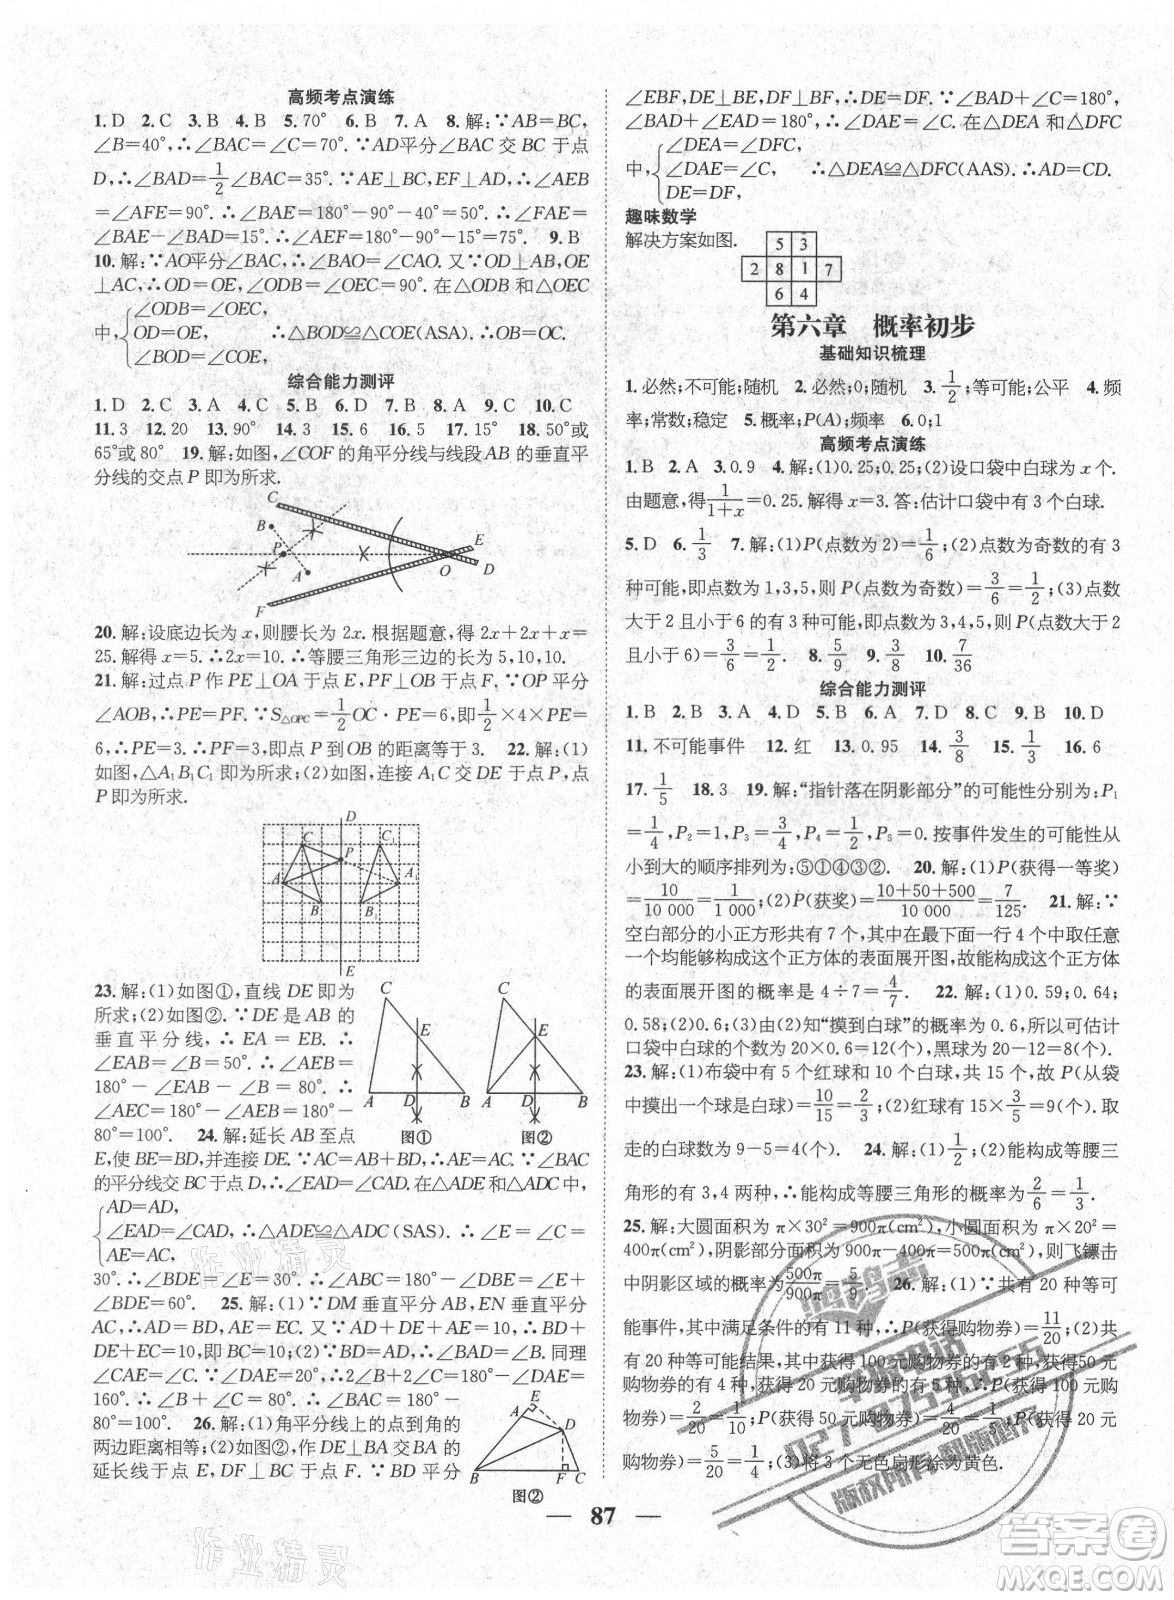 高频考点演练
1. D 2. C 3. B 4. B 5. 70° 6. B 7. A 8. 解:∵AB=BC,
∠B=40°,∴∠BAC=∠C=70°. ∵AD平分∠BAC交BC于点
D,∴∠BAD=1/2∠BAC=35°. ∵AE⊥BC,EF⊥AD,∴∠AEB
=∠AFE=90°. ∴∠BAE=180°-90°-40°=50°. ∴∠FAE=
∠BAE-∠BAD=15°. ∴∠AEF=180°-90°-15°=75°. 9. B
10. 解:∵AO平分∠BAC,∴∠BAO=∠CAO. 又∵OD⊥AB,OE
⊥AC,∴OD=OE,∠BDO=∠OEC=90°. 在△BOD和△COE
中,{∠BDO=∠OEC,
OD=OE,
∠BOD=∠COE,
∴△BOD≌△COE(ASA). ∴OB=OC.
综合能力测评
1. D 2. C 3. A 4. C 5. B 6. D 7. B 8. A 9. C 10. C
11. 3 12. 20 13. 90° 14. 3 15. 6 16. 6 17. 15° 18. 50°或
65°或80° 19. 解:如图,∠COF的角平分线与线段AB的垂直平
分线的交点P即为所求.
C
B
P
A
F
E
O D
20. 解:设底边长为x,则腰长为2x. 根据题意,得2x+2x+x=
25. 解得x=5. ∴2x=10. ∴等腰三角形三边的长为5,10,10.
21. 解:过点P作PE⊥OA于点E,PF⊥OB于点F. ∵OP平分
∠AOB,∴PE=PF. ∵S△OPC=1/2OC·PE=6,即1/2×4×PE=
6,∴PE=3. ∴PF=3,即点P到OB的距离等于3. 22. 解:(1)
如图,△A1B1C1即为所求;(2)如图,连接A1C交DE于点P,
点P即为所求.
D
C C1
P
A A1
B B1
E
23. 解:(1)如图①,直线DE即为
所求;(2)如图②. ∵DE是AB的
垂直平分线,∴EA=EB. ∴
∠EAB=∠B=50°. ∴∠AEB=
180°-∠EAB-∠B=80°. ∴
∠AEC=180°-∠AEB=180°-
80°=100°. 24. 解:延长AB至点
C
E
A D B
图①
C
E
A D B
图②
E,使BE=BD,并连接DE. ∵AC=AB+BD,∴AE=AC. ∵∠BAC
的平分线交BC于点D,∴∠EAD=∠CAD. 在△ADE和△ADC中,
{AD=AD,
∠EAD=∠CAD,
AE=AC,
∴△ADE≌△ADC(SAS). ∴∠E=∠C=
30°. ∴∠BDE=∠E=30°. ∴∠ABD=180°-∠DBE=∠E+
∠BDE=60°. 25. 解:(1)∵DM垂直平分AB,EN垂直平分
AC,∴DA=DB,AE=EC. 又∵DA+DE+AE=10,∴BD+
DE+EC=10,即BC=10;(2)∵DA=DB,∴∠DAB=∠B. 同理
∠EAC=∠C. 又∵∠DAE=20°,∴2∠B+2∠C=180°-∠DAE=
160°. ∴∠B+∠C=80°. ∴∠BAC=180°-(∠B+∠C)=180°-
80°=100°. 26. 解:(1)角平分线上的点到角的
两边距离相等;(2)如图②,作DE⊥BA交BA的
延长线于点E,DF⊥BC于点F. ∵BD平分
E
A D
B F C
图②
∠EBF,DE⊥BE,DF⊥BF,∴DE=DF. ∵∠BAD+∠C=180°,
∠BAD+∠EAD=180°,∴∠DAE=∠C. 在△DEA和△DFC
中,{∠DEA=∠DFC,
∠DAE=∠C,
DE=DF,
∴△DEA≌△DFC(AAS). ∴AD=CD.
趣味数学
解决方案如图.
5 3
2 8 1 7
6 4
第六章 概率初步
基础知识梳理
1. 必然;不可能;随机 2. 必然;0;随机 3. 1/2;等可能;公平 4. 频
率;常数;稳定 5. 概率;P(A);频率 6. 0;1
高频考点演练
1. B 2. A 3. 0.9 4. 解:(1)0.25;0.25;(2)设口袋中白球为x个.
由题意,得1/(1+x)=0.25. 解得x=3. 答:估计口袋中有3个白球.
5. D 6. 1/3 7. 解:(1)P(点数为2)=1/6;(2)点数为奇数的有3
种可能,即点数为1,3,5,则P(点数为奇数)=3/6=1/2;(3)点数
大于2且小于6的有3种可能,即点数为3,4,5,则P(点数大于2
且小于6)=3/6=1/2. 8. 5/9 9. 3/8 10. 7/36
综合能力测评
1. B 2. B 3. C 4. D 5. B 6. A 7. A 8. C 9. B 10. D
11. 不可能事件 12. 红 13. 0.95 14. 3/8 15. 1/3 16. 6
17. 1/5 18. 3 19. 解:“指针落在阴影部分”的可能性分别为:P1
=1/4,P2=1,P3=3/4,P4=1/2,P5=0. 按事件发生的可能性从
小到大的顺序排列为:⑤①④③②. 20. 解:(1)P(获得一等奖)
=10/10 000=1/1 000;(2)P(获奖)=(10+50+500)/10 000=7/125. 21. 解:∵
空白部分的小正方形共有7个,其中在最下面一行4个中取任意
一个均能够构成这个正方体的表面展开图,故能构成这个正方体
的表面展开图的概率是4÷7=4/7. 22. 解:(1)0.59;0.64;
0.58;(2)0.6;(3)由(2)知“摸到白球”的概率为0.6,所以可估计
口袋中白球的个数为20×0.6=12(个),黑球为20-12=8(个).
23. 解:(1)布袋中有5个红球和10个白球,共15个,故P(从袋
中摸出一个球是白球)=10/15=2/3;(2)红球有15×3/5=9(个),取
走的白球数为9-5=4(个). 24. 解:(1)1/2;(2)能构成等腰三
角形的有3,4两种,∴能构成等腰三角形的概率是2/6=1/3.
25. 解:大圆面积为π×30²=900π(cm²),小圆面积为π×20²=
400π(cm²),阴影部分面积为900π-400π=500π(cm²),则飞镖击
中阴影区域的概率为500π/900π=5/9. 26. 解:(1)∵共有20种等可
能事件,其中满足条件的有11种,∴P(获得购物券)=11/20;(2)共
有20种等可能结果,其中获得100元购物券的有2种,获得50元
购物券的有4种,获得20元购物券的有5种,∴P(获得100元购
物券)=2/20=1/10;P(获得50元购物券)=4/20=1/5;P(获得20元
购物券)=5/20=1/4;(3)将3个无色扇形涂为黄色.
— 87 —
作业精灵
作业精灵
答案卷
MXQE.COM